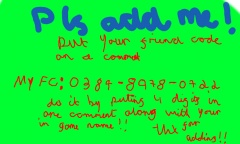 Pls add me!
Put your friend code
on a comment
My FC: 0384-8978-0722
do it by puting 4 digits in
one comment along with your
in game name!!
thx for
adding!!